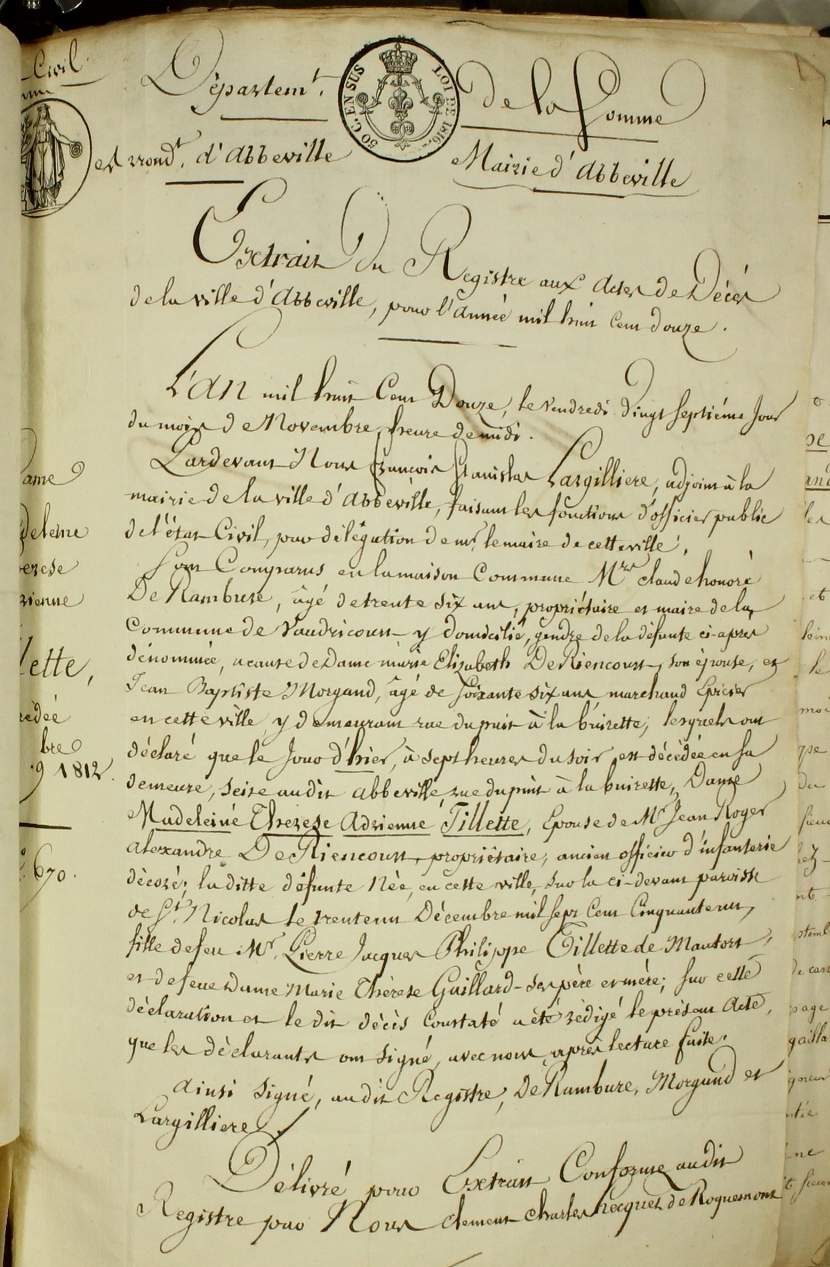 Civil
Départemt. de la Somme
50 C. EN SUS LOI DE 1816
arrondt. d'abbeville Mairie d'Abbeville
Extrait Du Registre aux Actes de Décès
de la ville d'Abbeville, pour l'année mil huit Cent douze.
L'AN mil huit Cent Douze, le Vendredi Vingt Septiéme Jour
du mois de Novembre, heure de midi.
Pardevant Nous françois Stanislas Largilliere, adjoint à la
mairie de la ville d'Abbeville, faisant les fonctions d'officier public
de l'état Civil, par délégation de mr. le maire de cette ville,
Sont Comparus en la maison Commune Mre. claude honoré
De Rambure, âgé de trente six ans, propriétaire et maire de la
Commune de Vaudricourt y domicilié, gendre de la défunte ci-après
dénommée, a cause de Dame marie Elizabeth De Riencourt, son épouse, et
Jean Baptiste Morgand, âgé de Soixante six ans marchand Epicier
en cette ville, y demeurant rue du puit à la buirette, lesquels ont
déclaré que le Jour d'hier, à sept heures du soir, est décédée en sa
demeure, seise audit abbeville, rue du puit à la buirette, Dame
Madeleine Therese Adrienne Tillette, Epouse de Mr. Jean Roger
alexandre De Riencourt, propriétaire, ancien officier d'infanterie
décoré; la ditte défunte Née, en cette ville, sur la ci-devant paroisse
de St. Nicolas le trente un Décembre mil sept Cent Cinquante un,
fille de feu Mr. Pierre Jacques Philippe Tillette de Mautort,
et de feue Dame Marie Thérèse Gaillard - ses père et mère; sur cette
déclaration et le dit décès Constaté a été rédigé le présent Acte,
que les déclarants ont signé, avec nous, après lecture faite.
Ainsi Signé, audit Registre, De Rambure, Morgand et
Largilliere
Délivré pour Extrait Conforme audit
Registre par Nous clement charles hecquet de Roquemont
Dame
lette,
bre
1812.
670.